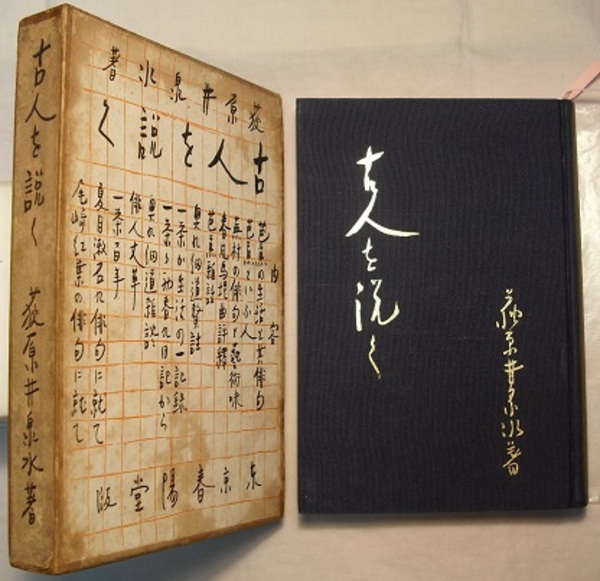 古人を説く 荻原井泉水著
荻原井泉水著
古人を説く
内容
芭蕉の生活と其俳句
芭蕉といふ人
蕪村の俳句と藝術味
春風馬堤曲評釋
芭蕉雜話
奥の細道擊註
一茶が生活の一記録
一茶の初春の日記から
奥の細道雜説
俳人文章
一茶百年
夏目漱石の俳句に就て
尾崎紅葉の俳句に就て
東京春陽堂版
古人を説く
荻原井泉水著